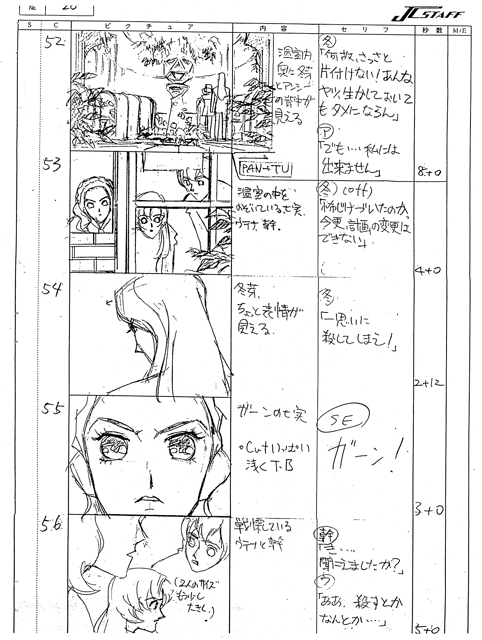 № 20
J.C.STAFF
S
C
ピクチュア
内容
セリフ
秒数
M/E
52
温室内
奥に冬芽
アンシー
の背中が
見える
冬
「何故、さっさと
片付けない!あんな
ヤツ、生かしておいて
もタメにならん」
ア
「でも…私には
出来ません」
8+0
53
PAN+TU
温室の中を
のぞいている七実、
ウテナ、幹。
冬 (off)
「怖じけづいたのか、
今更、計画の変更は
できない」
4+0
54
冬芽、
ちょっと表情が
見える
冬
「一思いに
殺してしまえ!」
2+12
55
ガーンの七実
浅くT.B
SE
ガーン!
3+0
56
戦慄している
ウテナと幹
(2人のサイズ
もう少し
大きく。)
幹
「き…
聞こえましたか?」
ウ
「ああ、殺すとか
なんとか…」
5+0